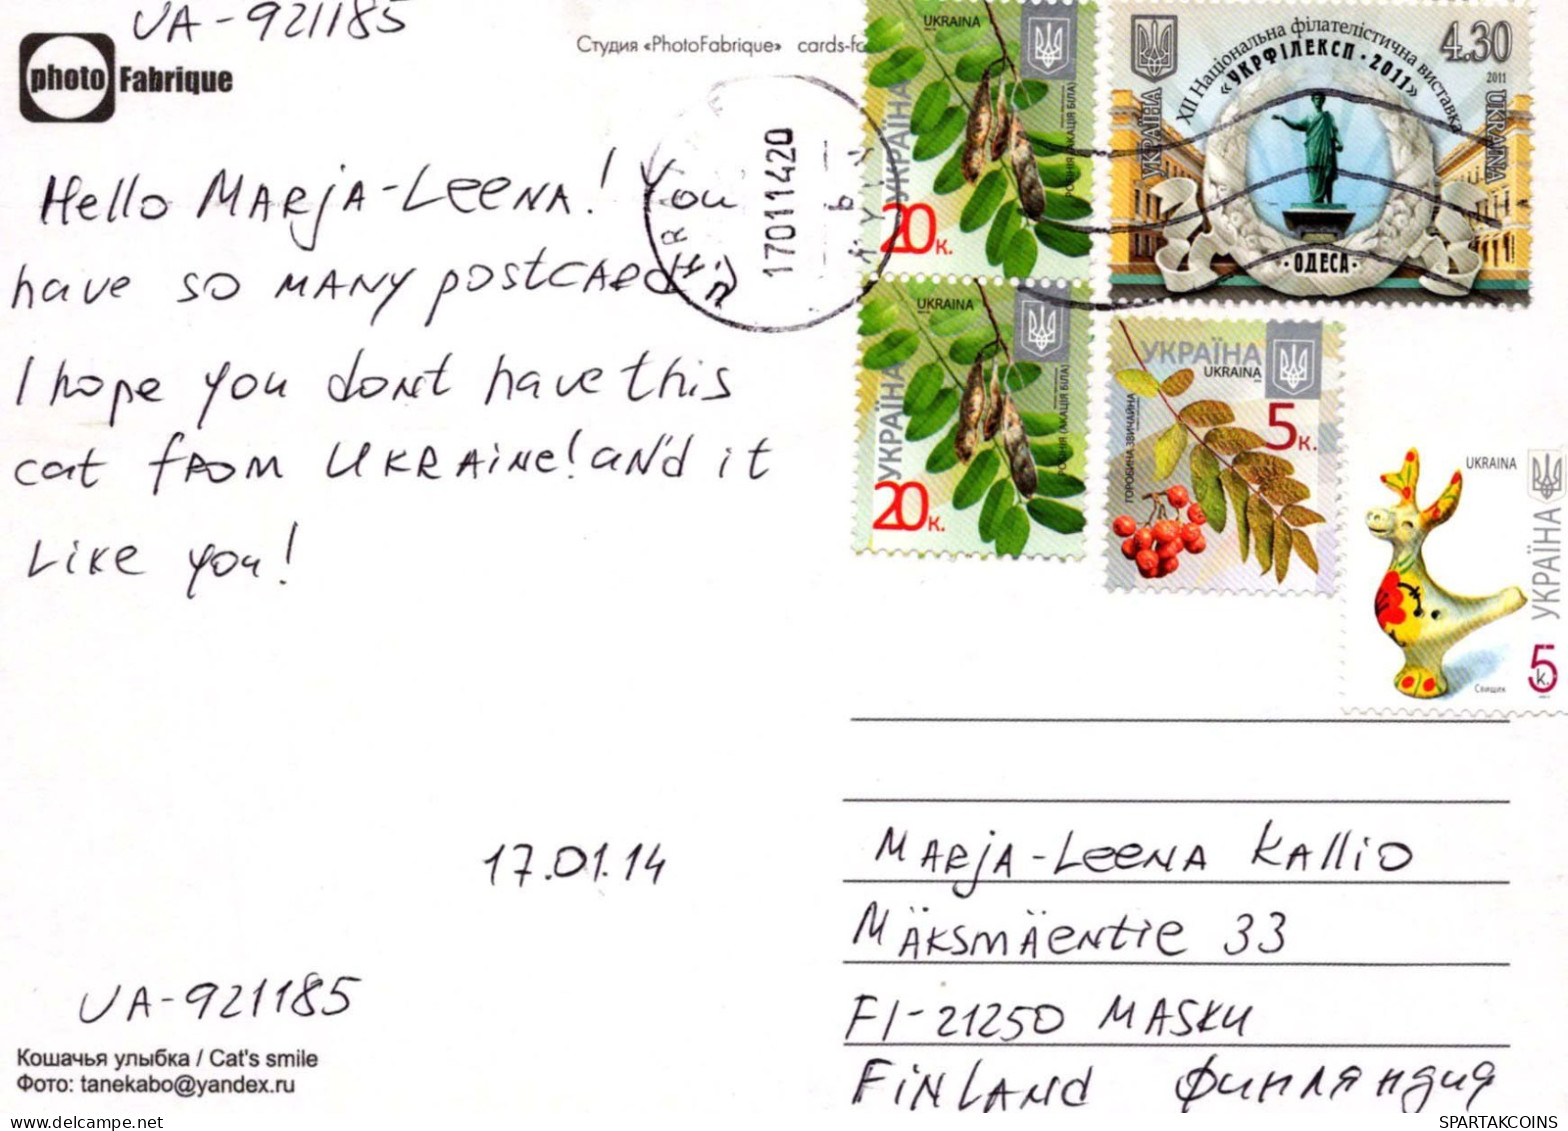 UA-921185
photo Fabrique
Студия «PhotoFabrique» cards-fa
Hello Marja-Leena! You
have so many postcard
I hope you dont have this
cat from Ukraine! and it
like you!
17.01.14
UA-921185
Кошачья улыбка / Cat's smile
Фото: tanekabo@yandex.ru
UKRAINA
УКРАЇНА
РОБІНІЯ (АКАЦІЯ БІЛА)
20к.
170111420
XII Національна філателістична виставка
«УКРФІЛЕКСП·2011»
4.30
2011
УКРАЇНА
UKRAINA
·ОДЕСА·
UKRAINA
УКРАЇНА
РОБІНІЯ (АКАЦІЯ БІЛА)
20к.
УКРАЇНА
UKRAINA
5к.
ГОРОБИНА ЗВИЧАЙНА
UKRAINA
УКРАЇНА
Свищик
5к.
Marja-Leena Kallio
Mäksmäentie 33
FI-21250 MASKU
FINLAND Финляндия
SPARTAKCOINS